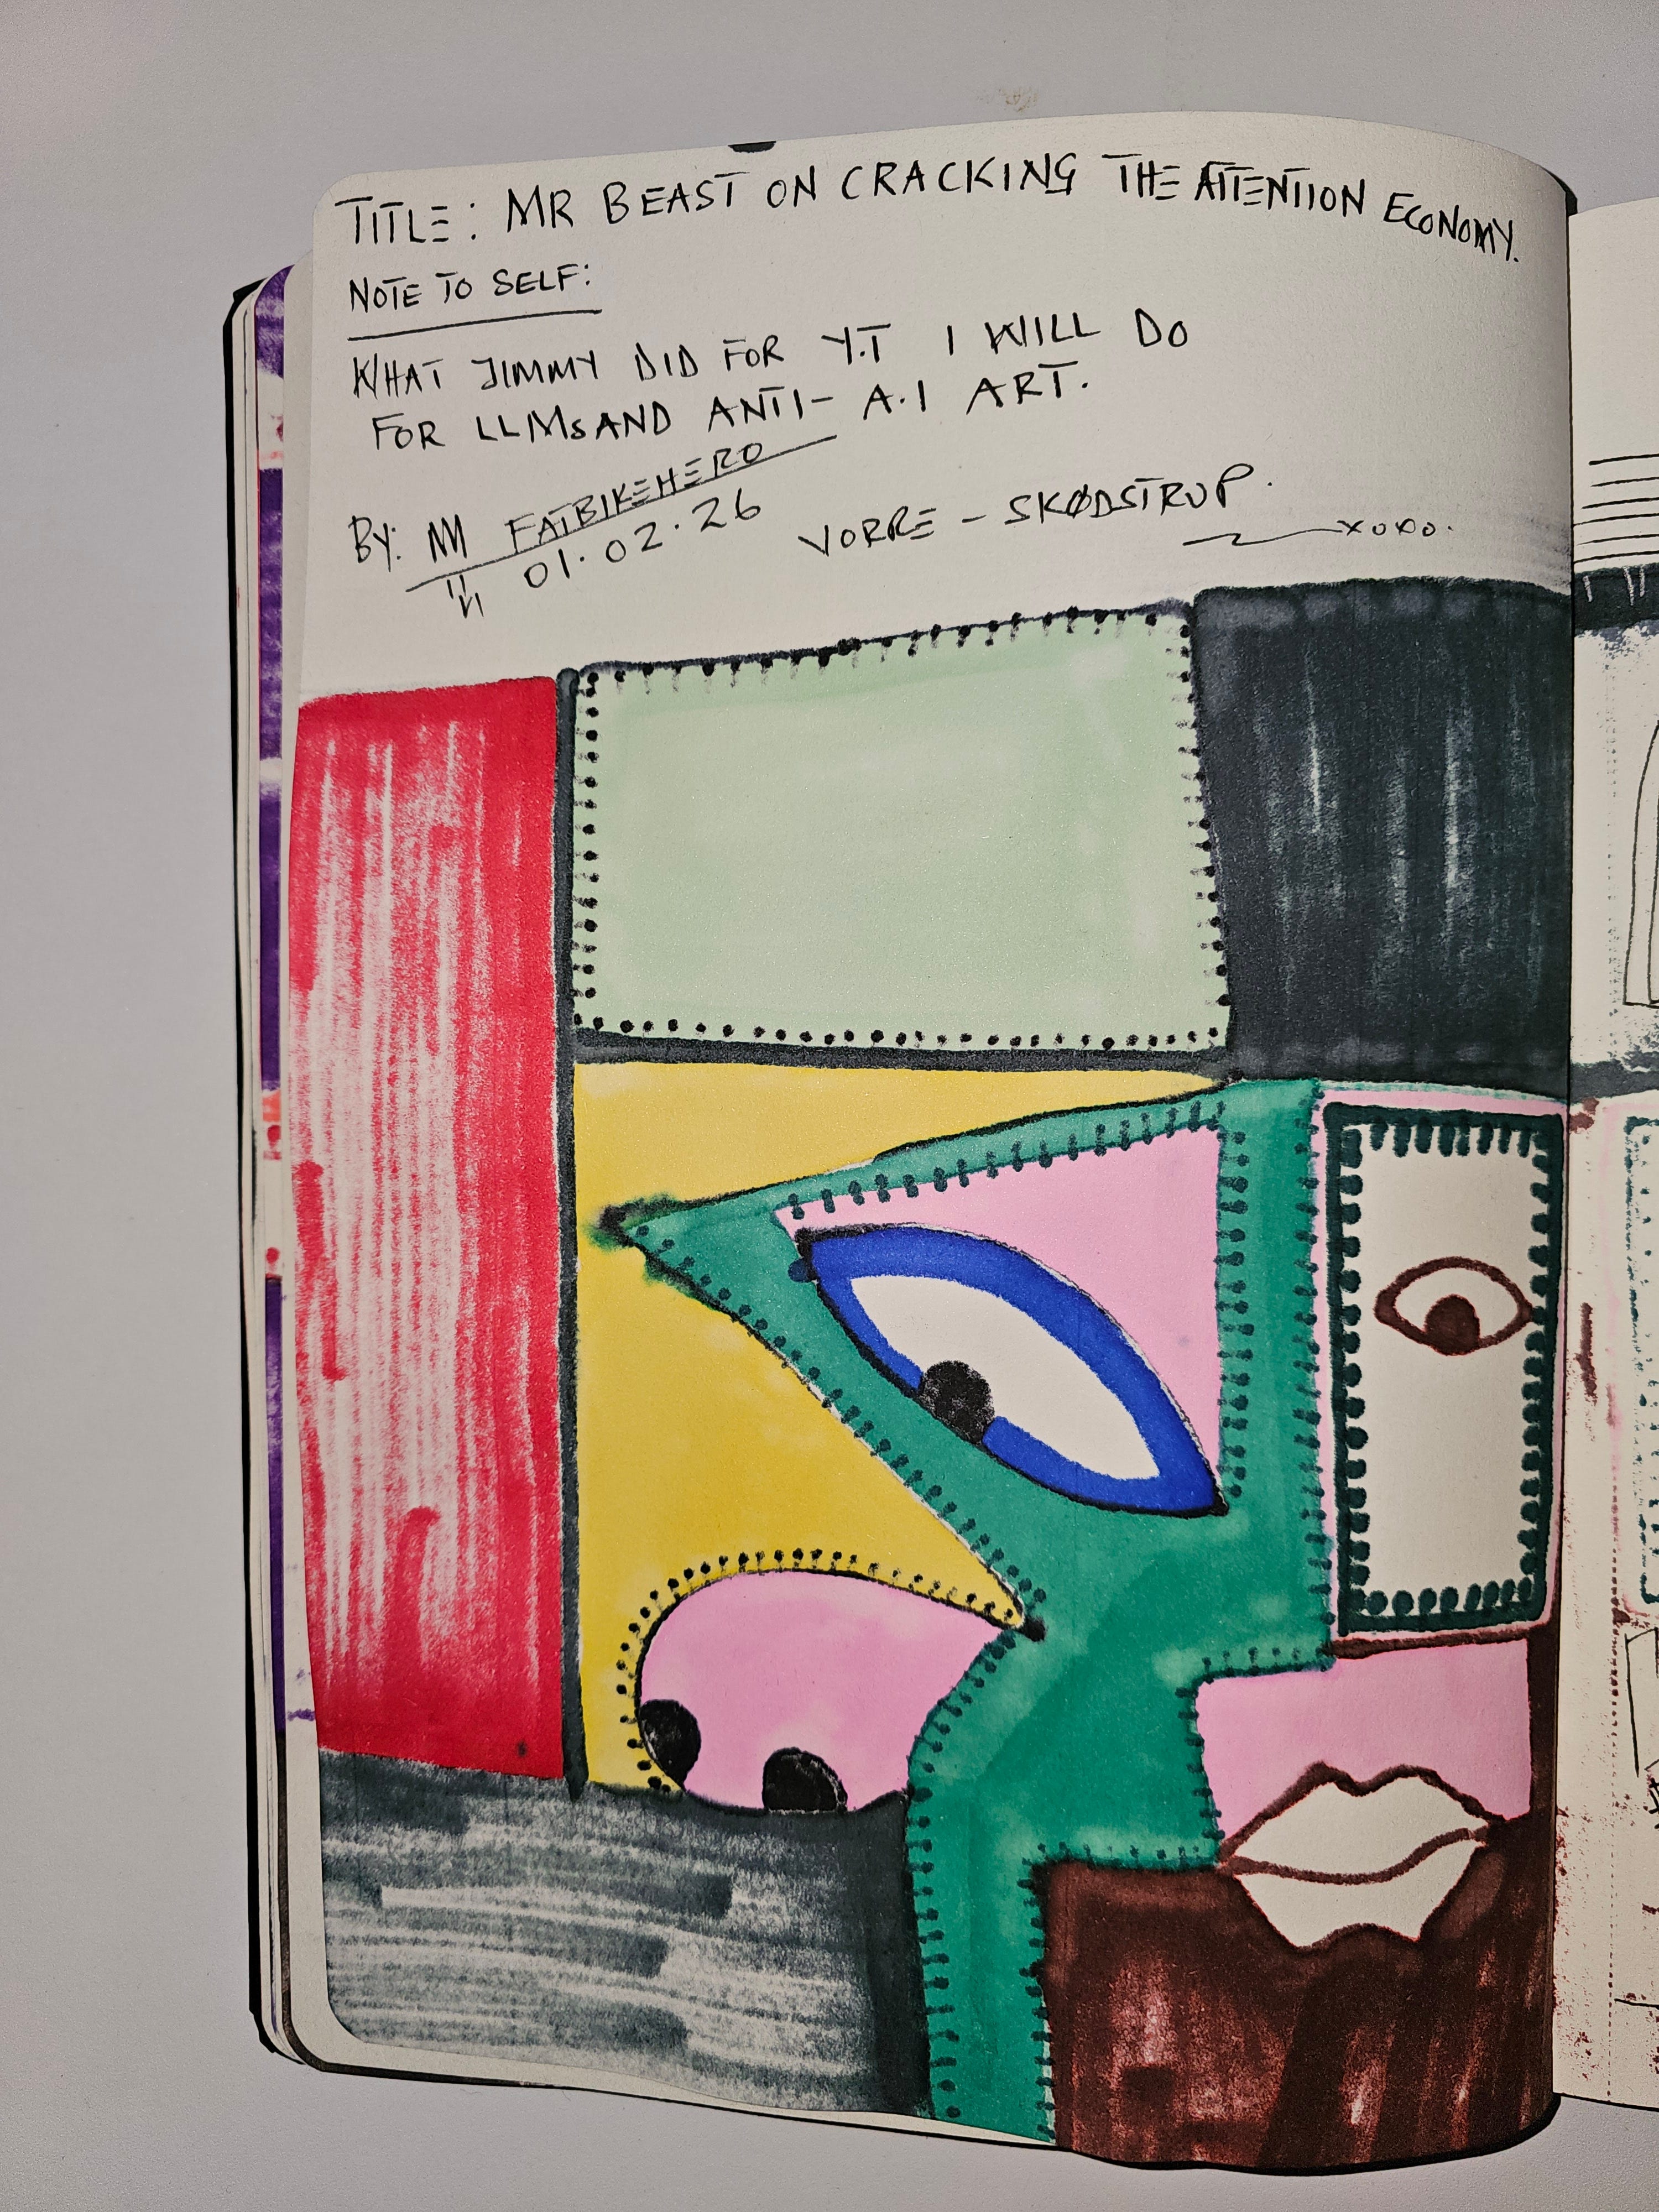 TITLE: MR BEAST ON CRACKING THE ATTENTION ECONOMY.
NOTE TO SELF:
WHAT JIMMY DID FOR Y.T I WILL DO
FOR LLMs AND ANTI-A.I ART.
BY: FATBIKEHERO
01.02.26 VORRE-SKØDSTRUP.
xoxo.